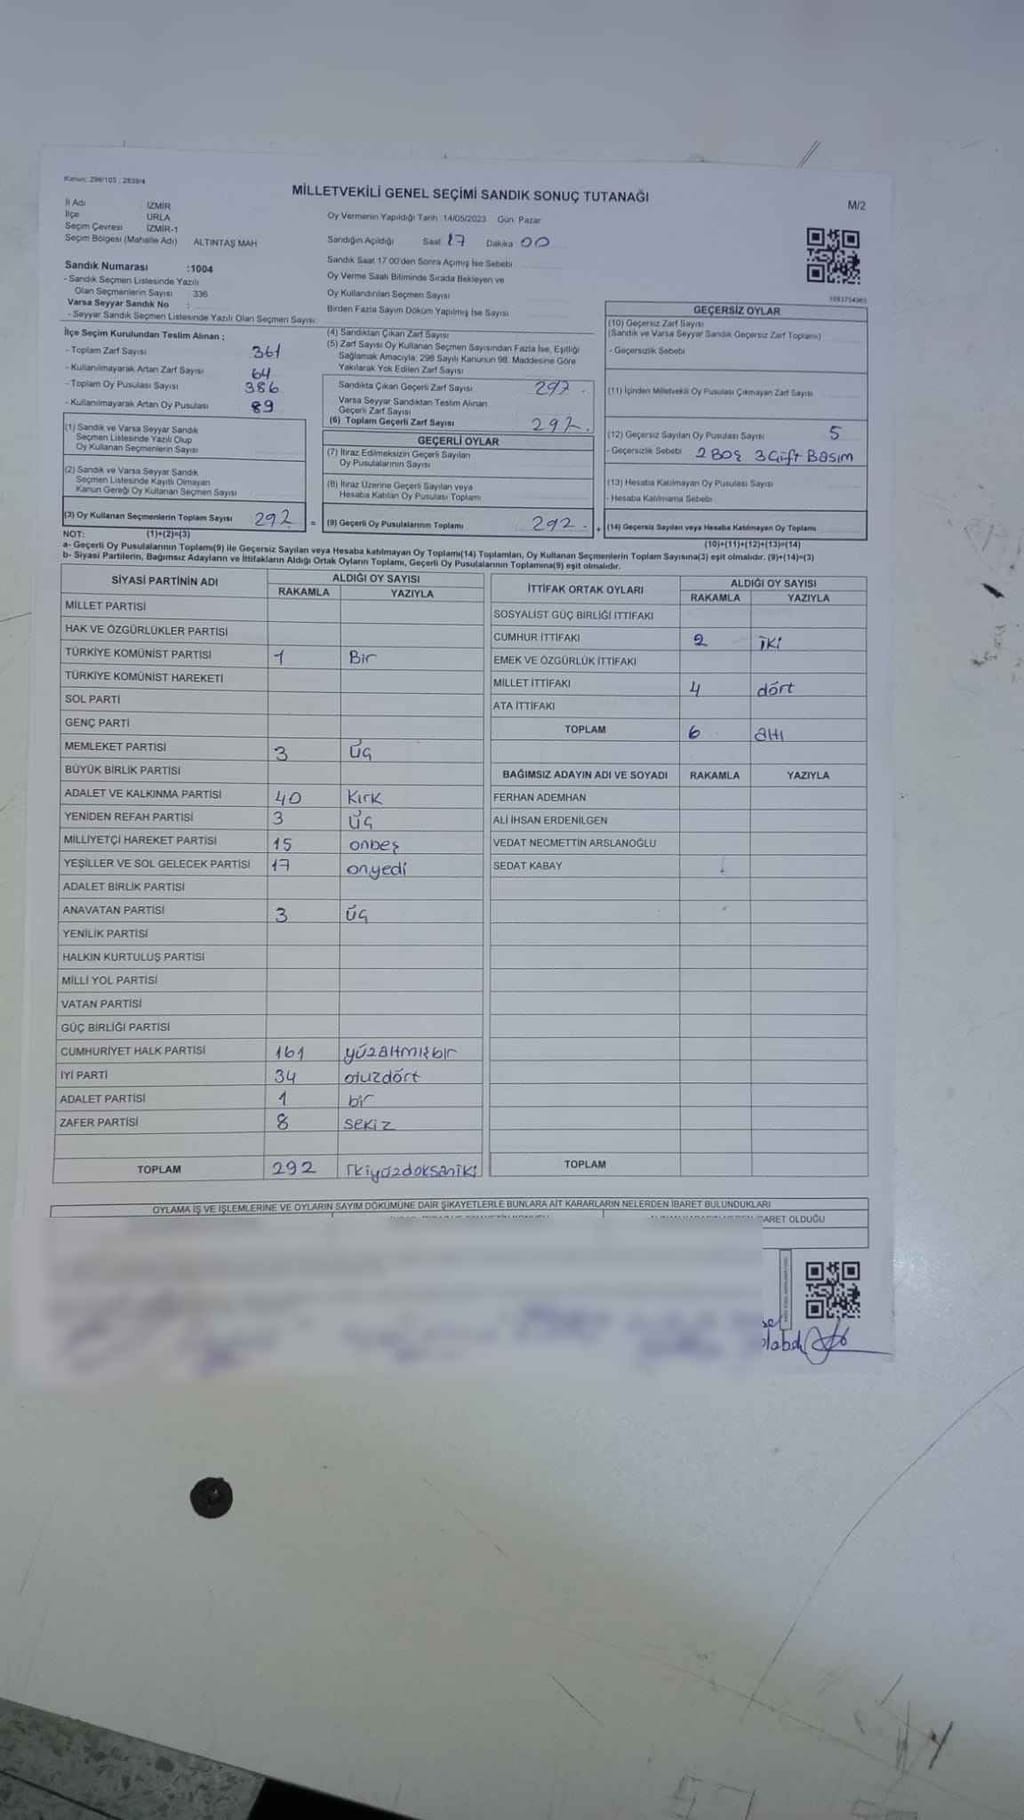 Kanun: 298/105 ; 2839/4
MİLLETVEKİLİ GENEL SEÇİMİ SANDIK SONUÇ TUTANAĞI
M/2
İl Adı İZMİR
İlçe URLA
Seçim Çevresi İZMİR-1
Seçim Bölgesi (Mahalle Adı) ALTINTAŞ MAH
Oy Vermenin Yapıldığı Tarih :14/05/2023 Gün: Pazar
Sandığın Açıldığı Saat 17 Dakika 00
Sandık Saat 17:00'den Sonra Açılmış İse Sebebi
Oy Verme Saati Bitiminde Sırada Bekleyen ve
Oy Kullandırılan Seçmen Sayısı
Birden Fazla Sayım Döküm Yapılmış İse Sayısı
Sandık Numarası :1004
- Sandık Seçmen Listesinde Yazılı
Olan Seçmenlerin Sayısı 336
Varsa Seyyar Sandık No :
- Seyyar Sandık Seçmen Listesinde Yazılı Olan Seçmen Sayısı:
İlçe Seçim Kurulundan Teslim Alınan :
- Toplam Zarf Sayısı 361
- Kullanılmayarak Artan Zarf Sayısı 64
- Toplam Oy Pusulası Sayısı 386
- Kullanılmayarak Artan Oy Pusulası 89
(1) Sandık ve Varsa Seyyar Sandık
Seçmen Listesinde Yazılı Olup
Oy Kullanan Seçmenlerin Sayısı
(2) Sandık ve Varsa Seyyar Sandık
Seçmen Listesinde Kayıtlı Olmayan
Kanun Gereği Oy Kullanan Seçmen Sayısı
(3) Oy Kullanan Seçmenlerin Toplam Sayısı 292 =
(4) Sandıktan Çıkan Zarf Sayısı
(5) Zarf Sayısı Oy Kullanan Seçmen Sayısından Fazla İse, Eşitliği
Sağlamak Amacıyla; 298 Sayılı Kanunun 98. Maddesine Göre
Yakılarak Yok Edilen Zarf Sayısı
Sandıkta Çıkan Geçerli Zarf Sayısı 297
Varsa Seyyar Sandıktan Teslim Alınan
Geçerli Zarf Sayısı
(6) Toplam Geçerli Zarf Sayısı 297.
GEÇERLİ OYLAR
(7) İtiraz Edilmeksizin Geçerli Sayılan
Oy Pusulalarının Sayısı
(8) İtiraz Üzerine Geçerli Sayılan veya
Hesaba Katılan Oy Pusulası Toplamı
(9) Geçerli Oy Pusulalarının Toplamı 292. +
GEÇERSİZ OYLAR
(10) Geçersiz Zarf Sayısı
(Sandık ve Varsa Seyyar Sandık Geçersiz Zarf Toplamı)
- Geçersizlik Sebebi
(11) İçinden Milletvekili Oy Pusulası Çıkmayan Zarf Sayısı
(12) Geçersiz Sayılan Oy Pusulası Sayısı 5
- Geçersizlik Sebebi 2 BOŞ 3 Çift Basım
(13) Hesaba Katılmayan Oy Pusulası Sayısı
- Hesaba Katılmama Sebebi
(14) Geçersiz Sayılan veya Hesaba Katılmayan Oy Toplamı
NOT: (1)+(2)=(3) (10)+(11)+(12)+(13)=(14)
a- Geçerli Oy Pusulalarının Toplamı(9) ile Geçersiz Sayılan veya Hesaba katılmayan Oy Toplamı(14) Toplamları, Oy Kullanan Seçmenlerin Toplam Sayısına(3) eşit olmalıdır. (9)+(14)=(3)
b- Siyasi Partilerin, Bağımsız Adayların ve İttifakların Aldığı Ortak Oyların Toplamı, Geçerli Oy Pusulalarının Toplamına(9) eşit olmalıdır.
SİYASİ PARTİNİN ADI ALDIĞI OY SAYISI
RAKAMLA YAZIYLA
MİLLET PARTİSİ
HAK VE ÖZGÜRLÜKLER PARTİSİ
TÜRKİYE KOMÜNİST PARTİSİ 1 Bir
TÜRKİYE KOMÜNİST HAREKETİ
SOL PARTİ
GENÇ PARTİ
MEMLEKET PARTİSİ 3 Üç
BÜYÜK BİRLİK PARTİSİ
ADALET VE KALKINMA PARTİSİ 40 Kırk
YENİDEN REFAH PARTİSİ 3 Üç
MİLLİYETÇİ HAREKET PARTİSİ 15 onbeş
YEŞİLLER VE SOL GELECEK PARTİSİ 17 onyedi
ADALET BİRLİK PARTİSİ
ANAVATAN PARTİSİ 3 Üç
YENİLİK PARTİSİ
HALKIN KURTULUŞ PARTİSİ
MİLLİ YOL PARTİSİ
VATAN PARTİSİ
GÜÇ BİRLİĞİ PARTİSİ
CUMHURİYET HALK PARTİSİ 161 yüzaltmışbir
İYİ PARTİ 34 otuzdört
ADALET PARTİSİ 1 bir
ZAFER PARTİSİ 8 sekiz
TOPLAM 292 İkiyüzdoksaniki
İTTİFAK ORTAK OYLARI ALDIĞI OY SAYISI
RAKAMLA YAZIYLA
SOSYALİST GÜÇ BİRLİĞİ İTTİFAKI
CUMHUR İTTİFAKI 2 İki
EMEK VE ÖZGÜRLÜK İTTİFAKI
MİLLET İTTİFAKI 4 dört
ATA İTTİFAKI
TOPLAM 6 altı
BAĞIMSIZ ADAYIN ADI VE SOYADI RAKAMLA YAZIYLA
FERHAN ADEMHAN
ALİ İHSAN ERDENİLGEN
VEDAT NECMETTİN ARSLANOĞLU
SEDAT KABAY
TOPLAM
OYLAMA İŞ VE İŞLEMLERİNE VE OYLARIN SAYIM DÖKÜMÜNE DAİR ŞİKAYETLERLE BUNLARA AİT KARARLARIN NELERDEN İBARET BULUNDUKLARI
BARET OLDUĞU